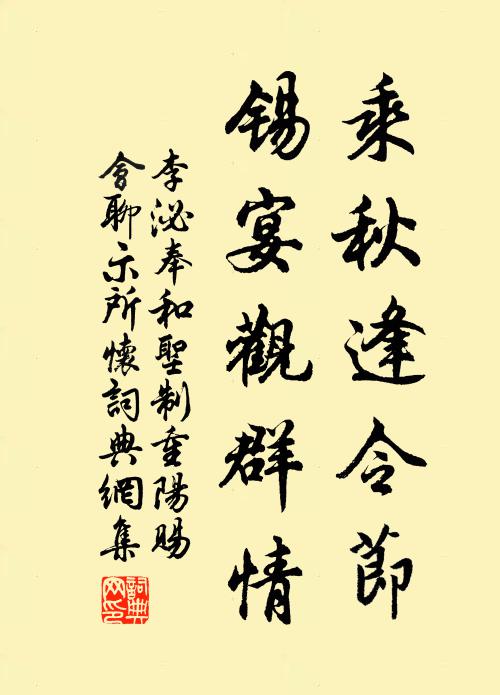 乘秋逢令節
錫宴觀群情
李泌奉和聖制重陽賜
會聊示所懷詞典網集
詞典
网印